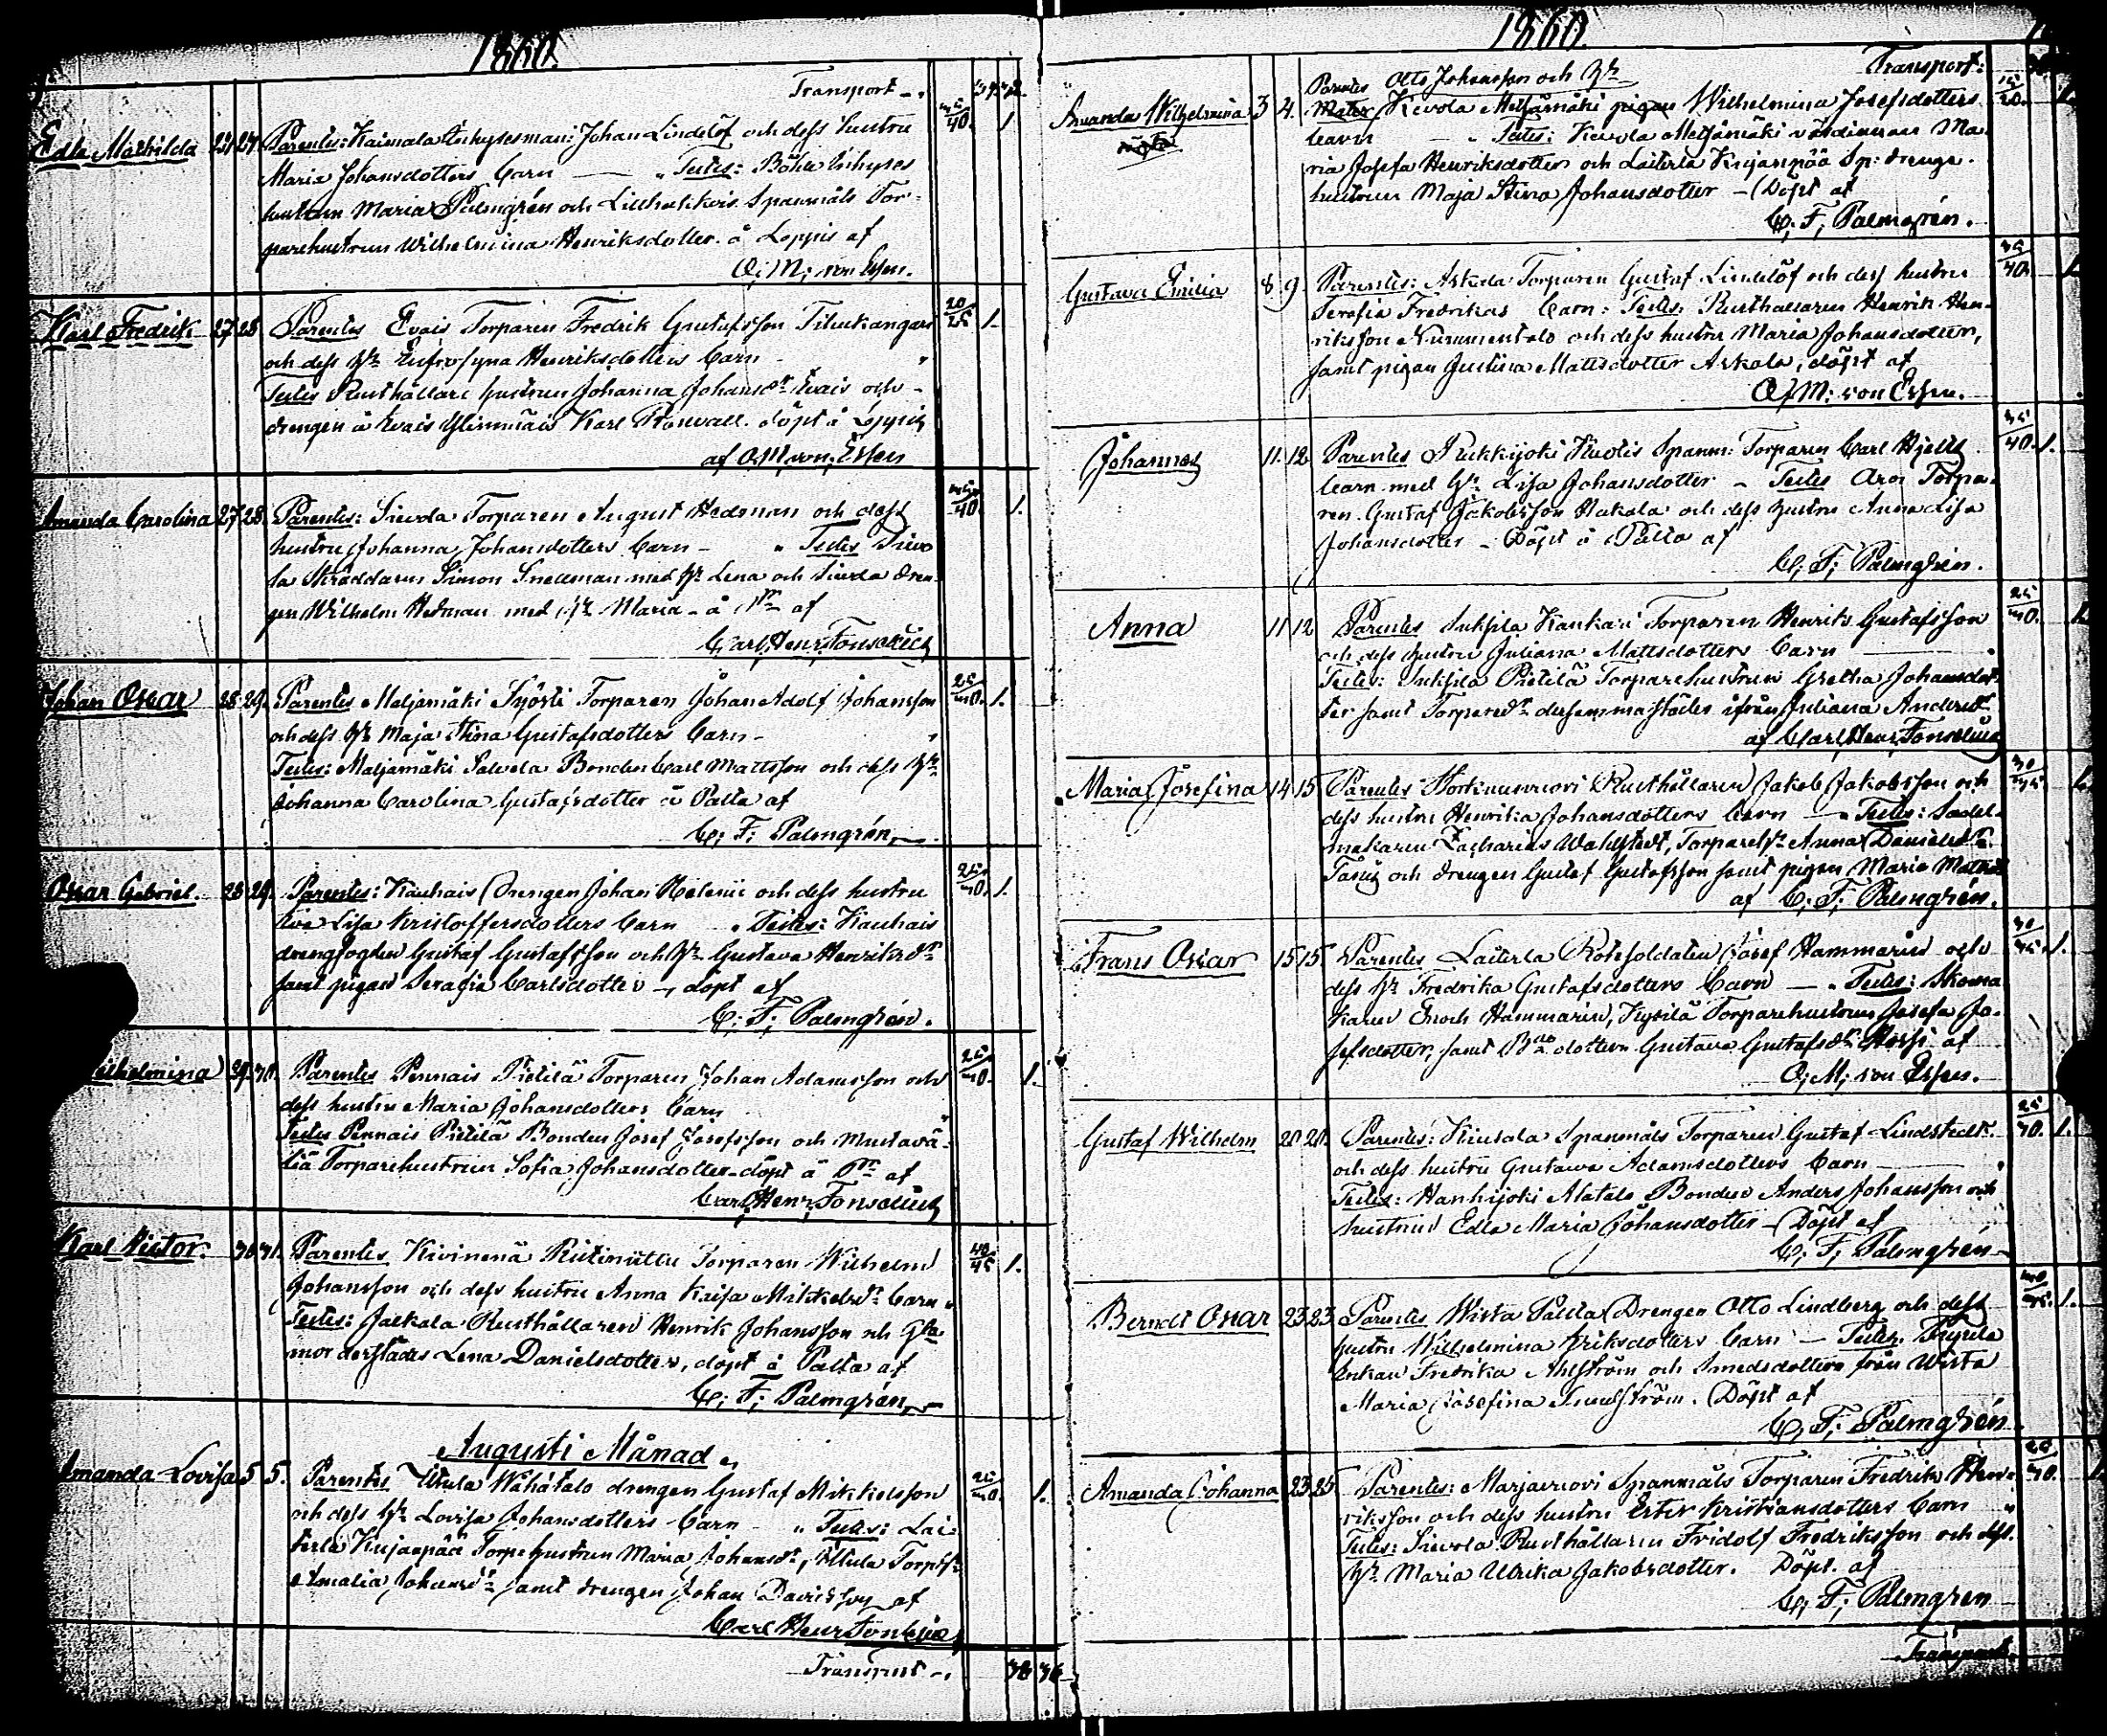 1860.
Transport
Edla Mathilda 23 24 Parentes: Kaimala Inhysesman: Johan Lindelöf och dess hustru 35/40. 1.
Maria Johansdotters barn — Testes: Böhle Inhyses
hustrun Maria Palmgrén och Spanmåls Tor-
parehustrun Wilhelmina Henriksdotter. å Loppis af
O: M: von Essen.
Karl Fredrik 27 28 Parentes Evais Torparen Fredrik Gustafsson 20/25 1.
och dess hr Eufrosyna Henriksdotters barn
Testes Rusthållare hustrun Johanna Johansdr Evais och
drengen å Evais Ylimmäis Karl döpt å Loppis
af O:M: von Essen
Amanda Carolina 27 28. Parentes: Sievola Torparen August Hedman och dess 35/40. 1.
hustru Johanna Johansdotters barn — Testes Siévo
la Skräddaren Simon Snellman med hr Lena och Sievola dren-
gen Wilhelm Hedman med hr Maria - å af
Carl Henr. Fonselius
Johan Oscar 28 29. Parentes Meljamäki Syösti Torparen Johan Adolf Johansson 25/30. 1.
och dess hr Maja Stina Gustafsdotters barn -
Testes: Meljamäki Salvela Bonden Carl Mattsson och dess hr
Johanna Carolina Gustafsdotter å Palta af
C: F: Palmgrén
Oscar Gabriel. 28 29. Parentes: Kauhais Drengen Johan Helenii och dess hustru 25/30. 1.
Eva Lisa Kristoffersdotters barn — Testes: Kauhais
drengfogden Gustaf Gustafsson och hr Gustava Henriksdr
samt pigan Serafia Carlsdotter - döpt af
C: F: Palmgrén.
Wilhelmina 29 30. Parentes Pennais Pietilä Torparen Johan Adamsson och 25/30. 1.
dess hustru Maria Johansdotters barn
Testes Pennais Pietilä Bonden Josef Josefsson och Mustavä-
liä Torparehustrun Sofia Johansdotter - döpt å af
Carl Henr. Fonselius
Karl Victor. 30 31. Parentes Kivinenä Torparen Wilhelm 40/45 1.
Johansson och dess hustru Anna Kaisa Mikkelsdr barn
Testes: Jaekala Rusthållaren Henrik Johansson och Gla
mor derstädes Lena Danielsdotter, döpt å Palta af
C: F: Palmgrén
Augusti Månad
Amanda Lovisa 5 5. Parentes Uhula Wähätalo drengen Gustaf Mikkelsson 25/30. 1.
och dess hr Lovisa Johansdotters barn — Testes: Lai-
terla Kujanpää Torpehustrun Maria Johansdr, Uhula
Amalia Johansdr samt drengen Johan Davidsson af
Carl Henr Fonselius
Transport
1860.
Transport:
Parentes Otto Johansson och hr
Amanda Wilhelmina 3 4. Mater Kevola Meljämäki pigan Wilhelmina Josefsdotters 15/20. 1.
barn — Testes: Kevola Meljämäki värdinnan Ma-
ria Josefa Henriksdotter och Laiterla Kujanpää Sp: drengs-
hustrun Maja Stina Johansdotter - Döpt af
C: F: Palmgrén.
Gustava Emilia 8 9. Parentes: Askala Torparen Gustaf Lindelöf och dess hustru 35/40. 1.
Serafia Fredrikas barn: Testes, Rusthållaren Henrik Hen-
riksson Nummentalo och dess hustru Maria Johansdotter,
samt pigan Gustava Mattsdotter Askala, döpt af
O: M: von Essen.
Johannes 11 12 Parentes Rukkijoki Huolis Spanm: Torparen Carl Hjelts 35/40. 1.
barn med hr Lisa Johansdotter - Testes Aron Torpa-
ren Gustaf Jakobsson Hakala och dess hustru Anna Lisa
Johansdotter - Döpt å Palta af
C: F: Palmgrén.
Anna 11 12 Parentes Suksila Kankari Torparen Henrik Gustafsson 25/30.
och dess hustru Juliana Mattsdotters barn
Testes: Suksila Pietilä Torparehustrun Gretha Johansdot-
ter samt Torparedr dersammastädes ifrån Juliana Andersdr
af Carl Henr. Fonselius
Maria Josefina 14 15 Parentes Storkinunnori Rusthållaren Jakob Jakobsson och 30/35. 1.
dess hustru Henrika Johansdotters barn — Testes: Sadel-
makaren Zacharias Wahlstedt, Torparehr Anna Danielsdr
och drengen Gustaf Gustafsson samt pigan Maria
af C: F: Palmgrén.
Frans Oscar 15 15. Parentes Laiterla Rotesoldaten Josef Hammarin och 30/35. 1.
dess hr Fredrika Gustafsdotters barn — Testes: Skoma
karen Enoch Hammarin, Torparehustrun Josefa Jo-
sefsdotter, samt Bdedottern Gustava Gustafsdr Hossi af
O: M: von Essen.
Gustaf Wilhelm 20 20. Parentes: Kiusala Spanmåls Torparen Gustaf Lindstedt 25/30. 1.
och dess hustru Gustava Adamsdotters barn
Testes: Hanhijoki Alatalo Bonden Anders Johansson och
hustrun Edla Maria Johansdotter - Döpt af
C: F: Palmgrén
Berndt Oscar 23 23 Parentes Wista Palta Drengen Otto Lindberg och dess 30/35. 1.
hustru Wilhelmina Eriksdotters barn — Testes
Enkan Fredrika Ahlström och Smedsdottern från Wista
Maria Josefina Sundström. Döpt af
C: F: Palmgrén
Amanda Johanna 23 25 Parentes: Marjavuori Spanmåls Torparen Fredrik Hen- 25/30.
riksson och dess hustru Ester Kristiansdotters barn
Testes: Sievola Rusthållaren Fridolf Fredriksson och dess
hr Maria Ulrika Jakobsdotter. Döpt af
C: F: Palmgren
Transport.